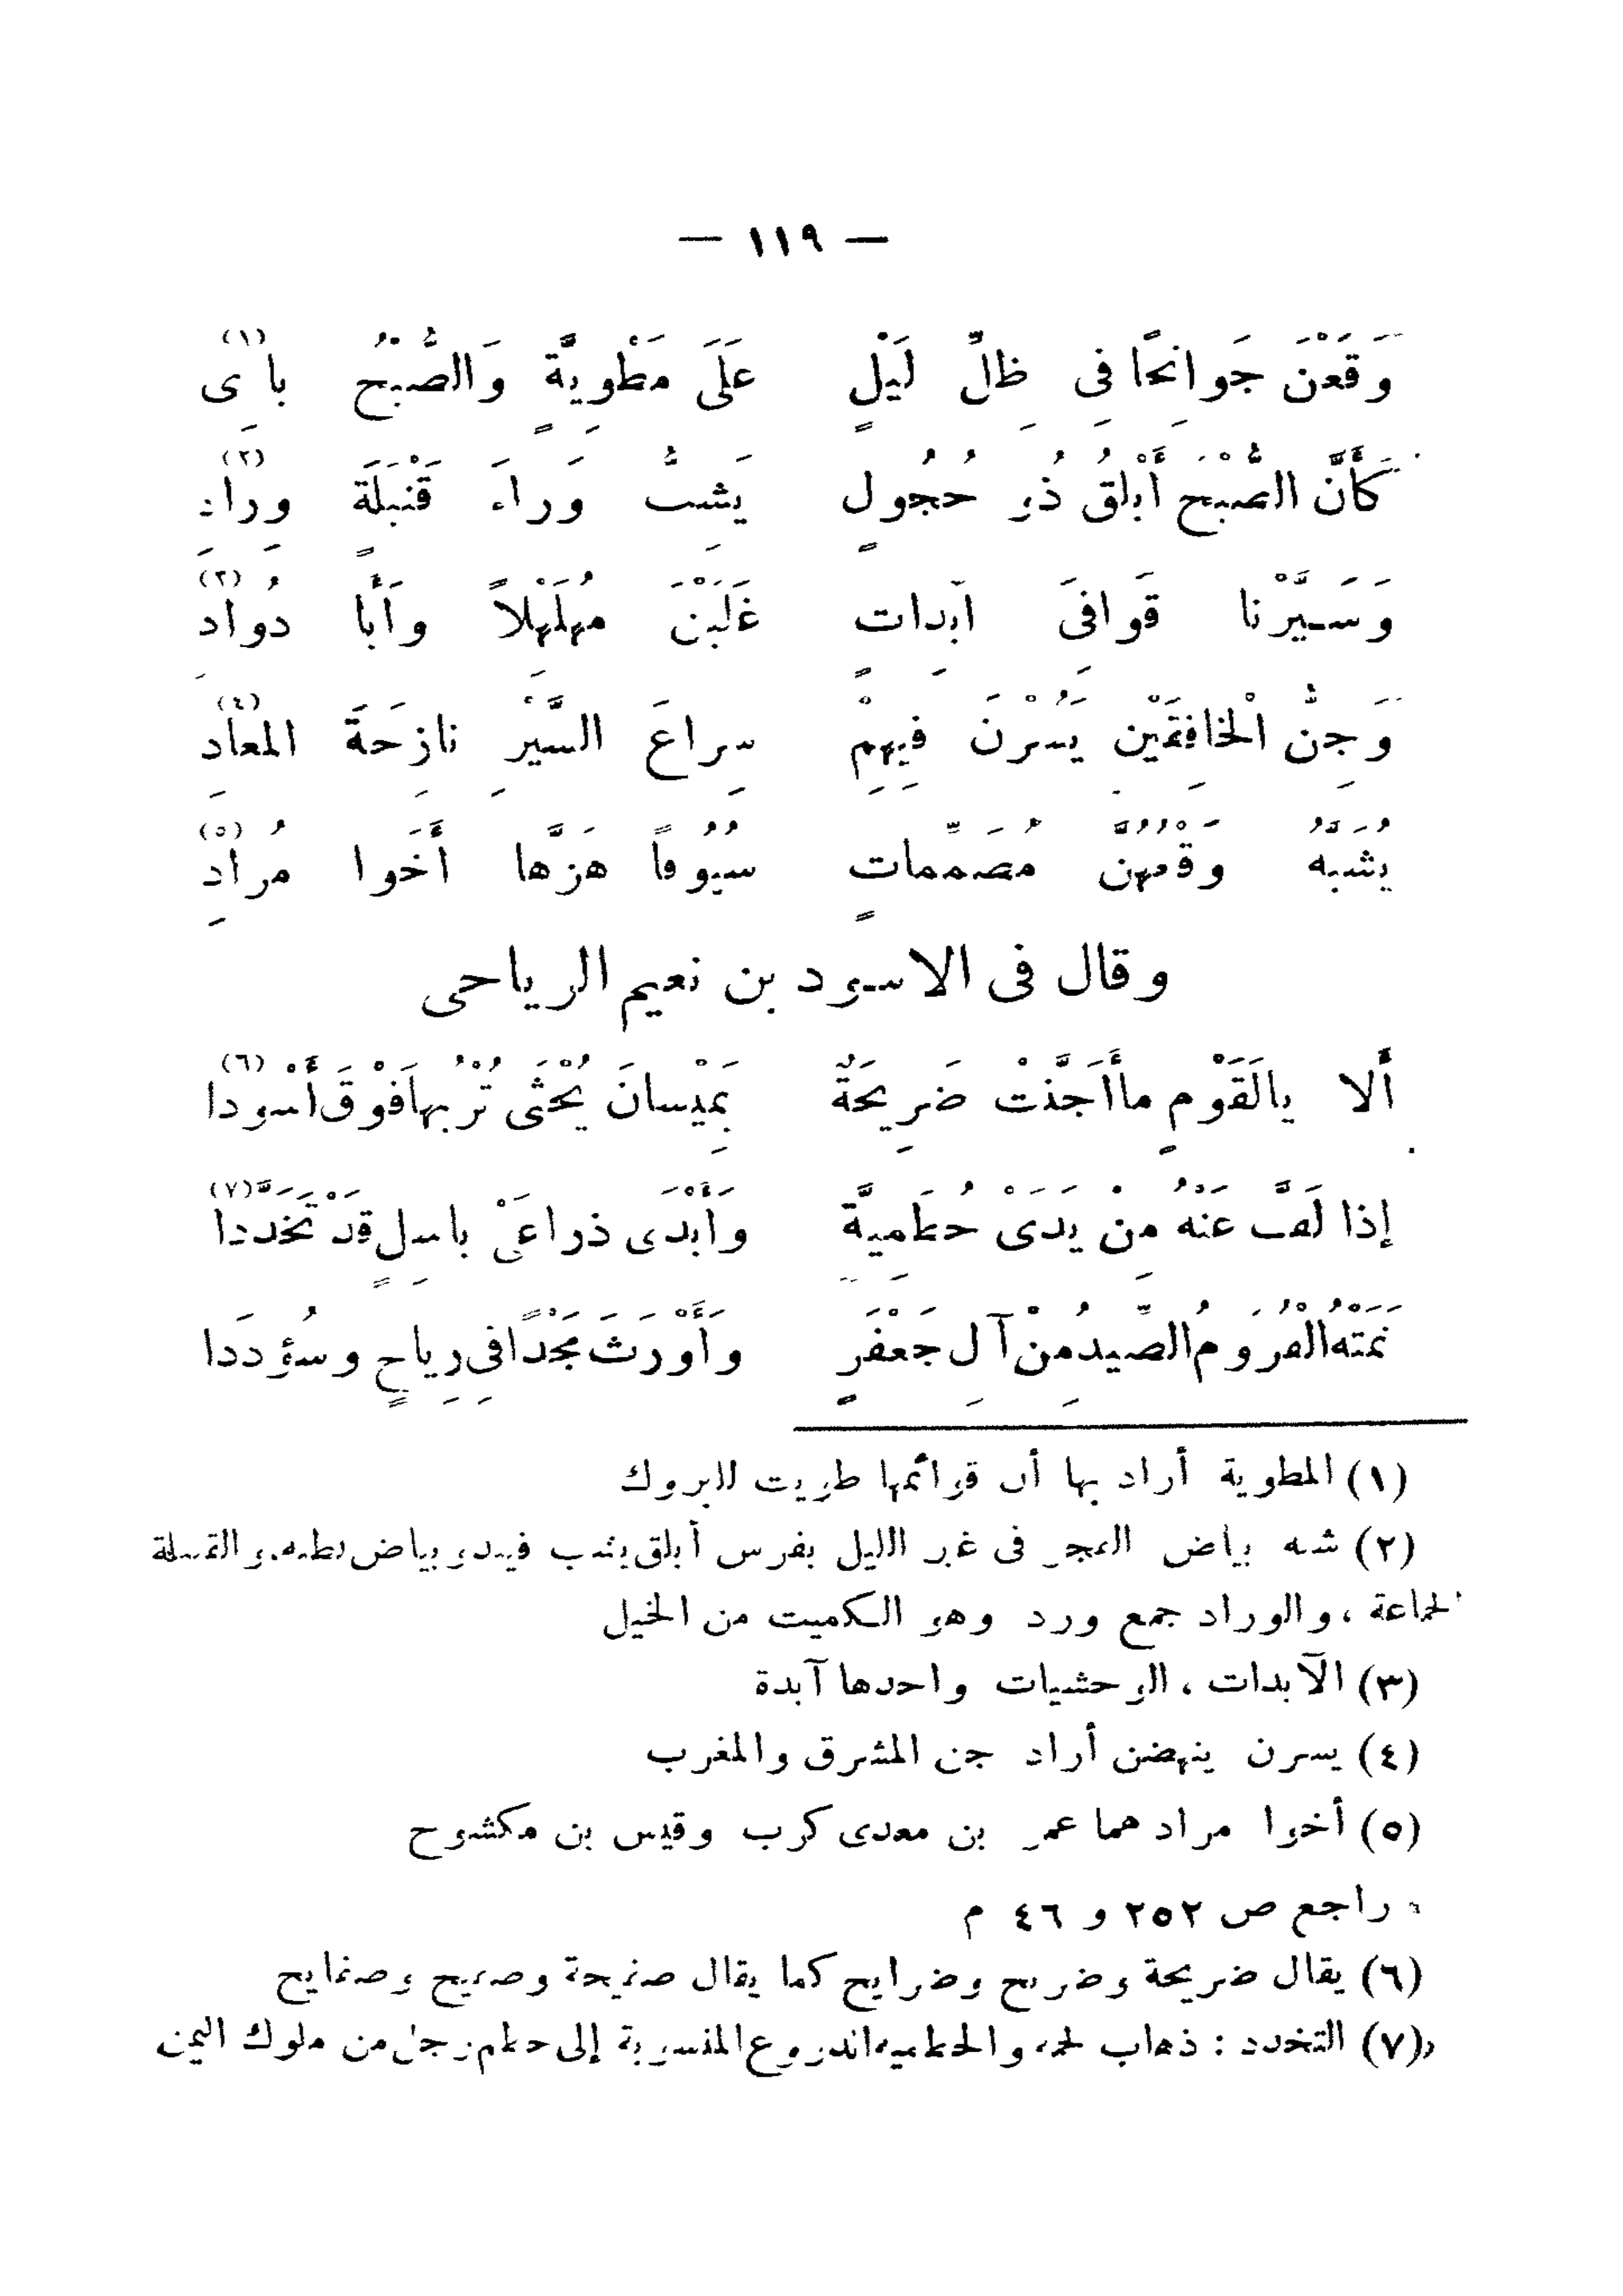 — ١١٩ —
وَقَعْنَ جَوَانِحًا فِى ظِلِّ لَيْلٍ عَلَى مَطْوِيَّةٍ وَالصُّبْحُ بادِى (١)
كَأَنَّ الصُّبْحَ أَبْلَقُ ذُو حُجُولٍ يَشِبُّ وَراءَ قَنْبَلَةٍ وِرادِ (٢)
وَسَيَّرْنا قَوافِىَ آبِداتٍ غَلَبْنَ مُهَلْهِلاً وأَبا دُوادِ (٣)
وَجِنُّ الْخافِقَيْنِ يَسُرْنَ فِيهِمْ سِراعَ السَّيْرِ نازِحَةَ المَعادِ (٤)
يُشَبَّهُ وَقْعُهُنَّ مُصَمِّماتٍ سُيُوفاً هَزَّها أَخَوا مُرادِ (٥)
وقال فى الاسود بن نعيم الرياحى
أَلا يالَقَوْمٍ ماأَجَنَّتْ ضَرِيحَةٌ بِمَيْسانَ يُحْثَى تُرْبُها فَوْقَ أَسْودا (٦)
إذا لَفَّ عَنْهُ مِنْ يَدَىْ حُطَمِيَّةٍ وأَبْدَى ذراعَىْ باسِلٍ قَدْ تَخَدَّدا (٧)
نَمَتْهُ القُرُومُ الصِّيدُ مِنْ آلِ جَعْفَرٍ وأَوْرَثَ مَجْدًا فِى رِياحٍ وسُؤددَا
(١) المطوية أراد بها أن قوائمها طويت للبروك
(٢) شبه بياض الفجر فى غبر الليل بفرس أبلق يشب فيبدو بياض بطنه. والقنبلة
الجماعة ، والوراد جمع ورد وهو الكميت من الخيل
(٣) الآبدات ، الوحشيات واحدها آبدة
(٤) يسرن ينهضن أراد جن المشرق والمغرب
(٥) أخوا مراد هما عمرو بن معدى كرب وقيس بن مكشوح
راجع ص ٢٥٢ و ٤٦ م
(٦) يقال ضريحة وضريح وضرايح كما يقال صفيحة وصفيح وصفايح
(٧) التخدد : ذهاب لحمه والحطمية الدروع المنسوبة إلى حطم رجل من ملوك اليمن